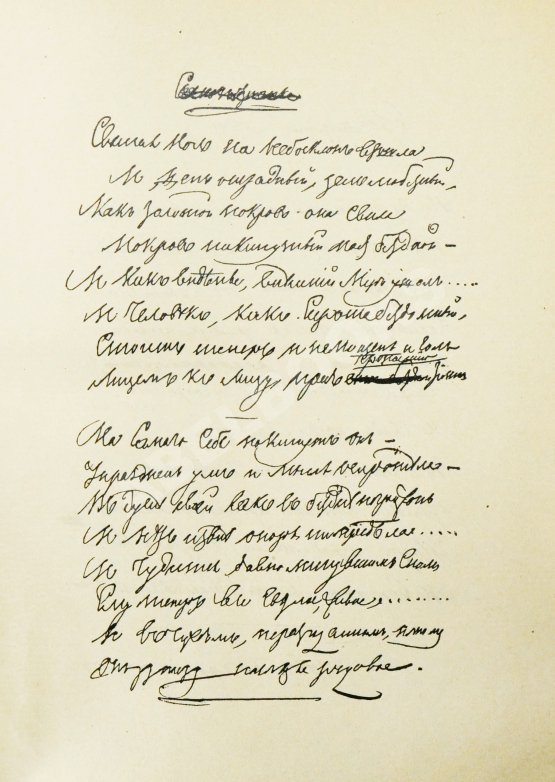 Святая ночь на небосклонъ взошла
И День отрадный, день любезный,
Какъ золотой покровъ она свила
Покровъ накинутый надъ бездной —
И какъ видѣнье, внѣшній Міръ ушелъ.....
И Человѣкъ, какъ Сирота бездомный,
Стоитъ теперь и немощенъ и голъ
Лицемъ къ лицу предъ пропастію
На Самаго Себя покинутъ онъ —
Упраздненъ умъ и мысль осиротѣла —
Въ душѣ своей какъ въ безднѣ погруженъ
И нѣтъ извнѣ опоры ни предѣла.....
И Чудится давноминувшимъ Сномъ
Ему теперь все свѣтлое, живое........
И въ чуждомъ, неразгаданномъ, ночномъ
Онъ узнаетъ наслѣдье родовое.